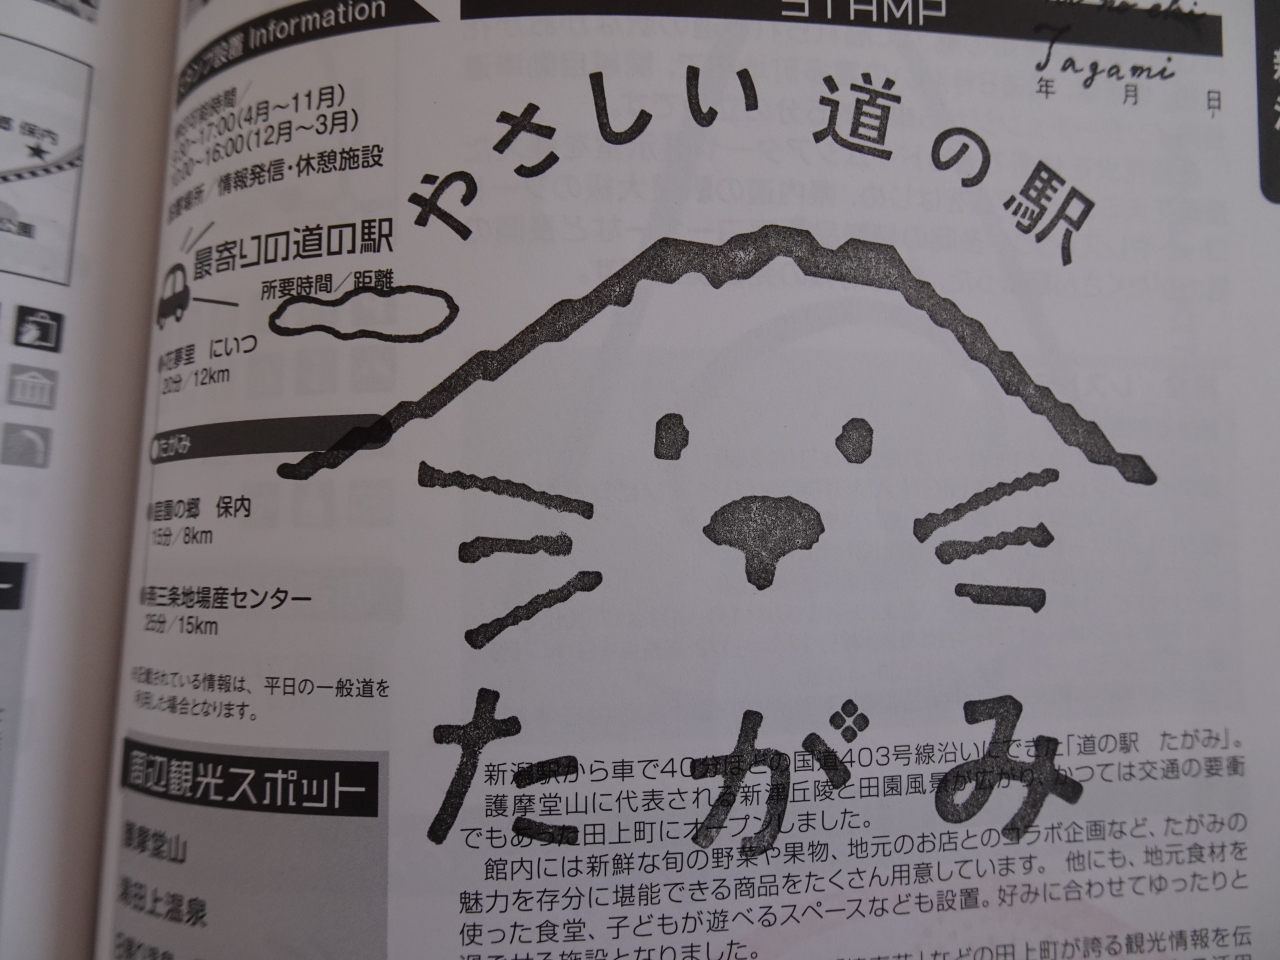 Information
STAMP
Tagami
年 月 日
やさしい道の駅
00～17:00(4月～11月)
10:00～16:00(12月～3月)
情報発信・休憩施設
最寄りの道の駅
所要時間／距離
花夢里 にいつ
20分／12km
たがみ
庭園の郷 保内
15分／8km
燕三条地場産センター
25分／15km
※記載されている情報は、平日の一般道を
利用した場合となります。
周辺観光スポット
護摩堂山
湯田上温泉
保内
たがみ
新潟駅から車で40分ほどの国道403号線沿いにできた「道の駅 たがみ」。
護摩堂山に代表される新津丘陵と田園風景が広がり、かつては交通の要衝
でもあった田上町にオープンしました。
館内には新鮮な旬の野菜や果物、地元のお店とのコラボ企画など、たがみの
魅力を存分に堪能できる商品をたくさん用意しています。他にも、地元食材を
使った食堂、子どもが遊べるスペースなども設置。好みに合わせてゆったりと
過ごせる施設となりました。
などの田上町が誇る観光情報を伝